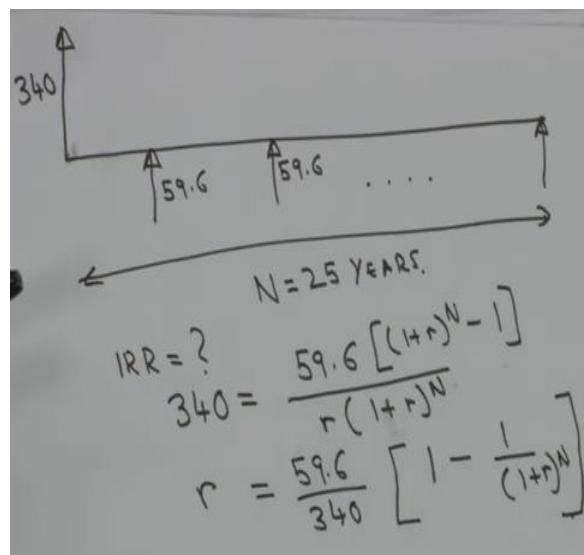 340
59.6 59.6 ....
N = 25 YEARS.
IRR = ?
340 = 59.6 [(1+r)^N - 1] / r(1+r)^N
r = 59.6/340 [1 - 1/(1+r)^N]